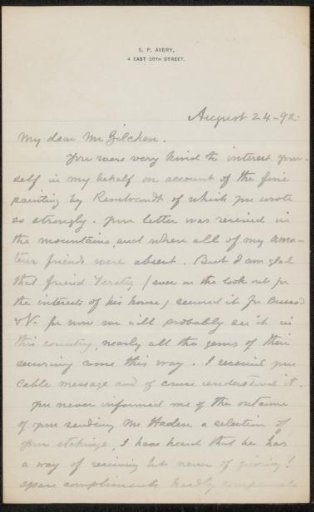 S. P. AVERY,
4 EAST 38TH STREET.
August 24-92.
My dear Mr Zilcken.
You were very kind to interest your-
self in my behalf on account of the fine
painting by Rembrandt of which you wrote
so strongly. your letter was received in
the mountains and when all of my ama-
teur friends were absent. But I am glad
that friend (ever on the look out for
the interests of his house) secured it for
&V. for now we will probably see it in
this country, nearly all the gems of their
securing come this way. I received your
Cable message and of course understood it.
You never informed me of the outcome
of your sending Mr Haden a selection of
your etchings, I have heard that he has
a way of receiving but never of giving!
spare compliments hardly compensate